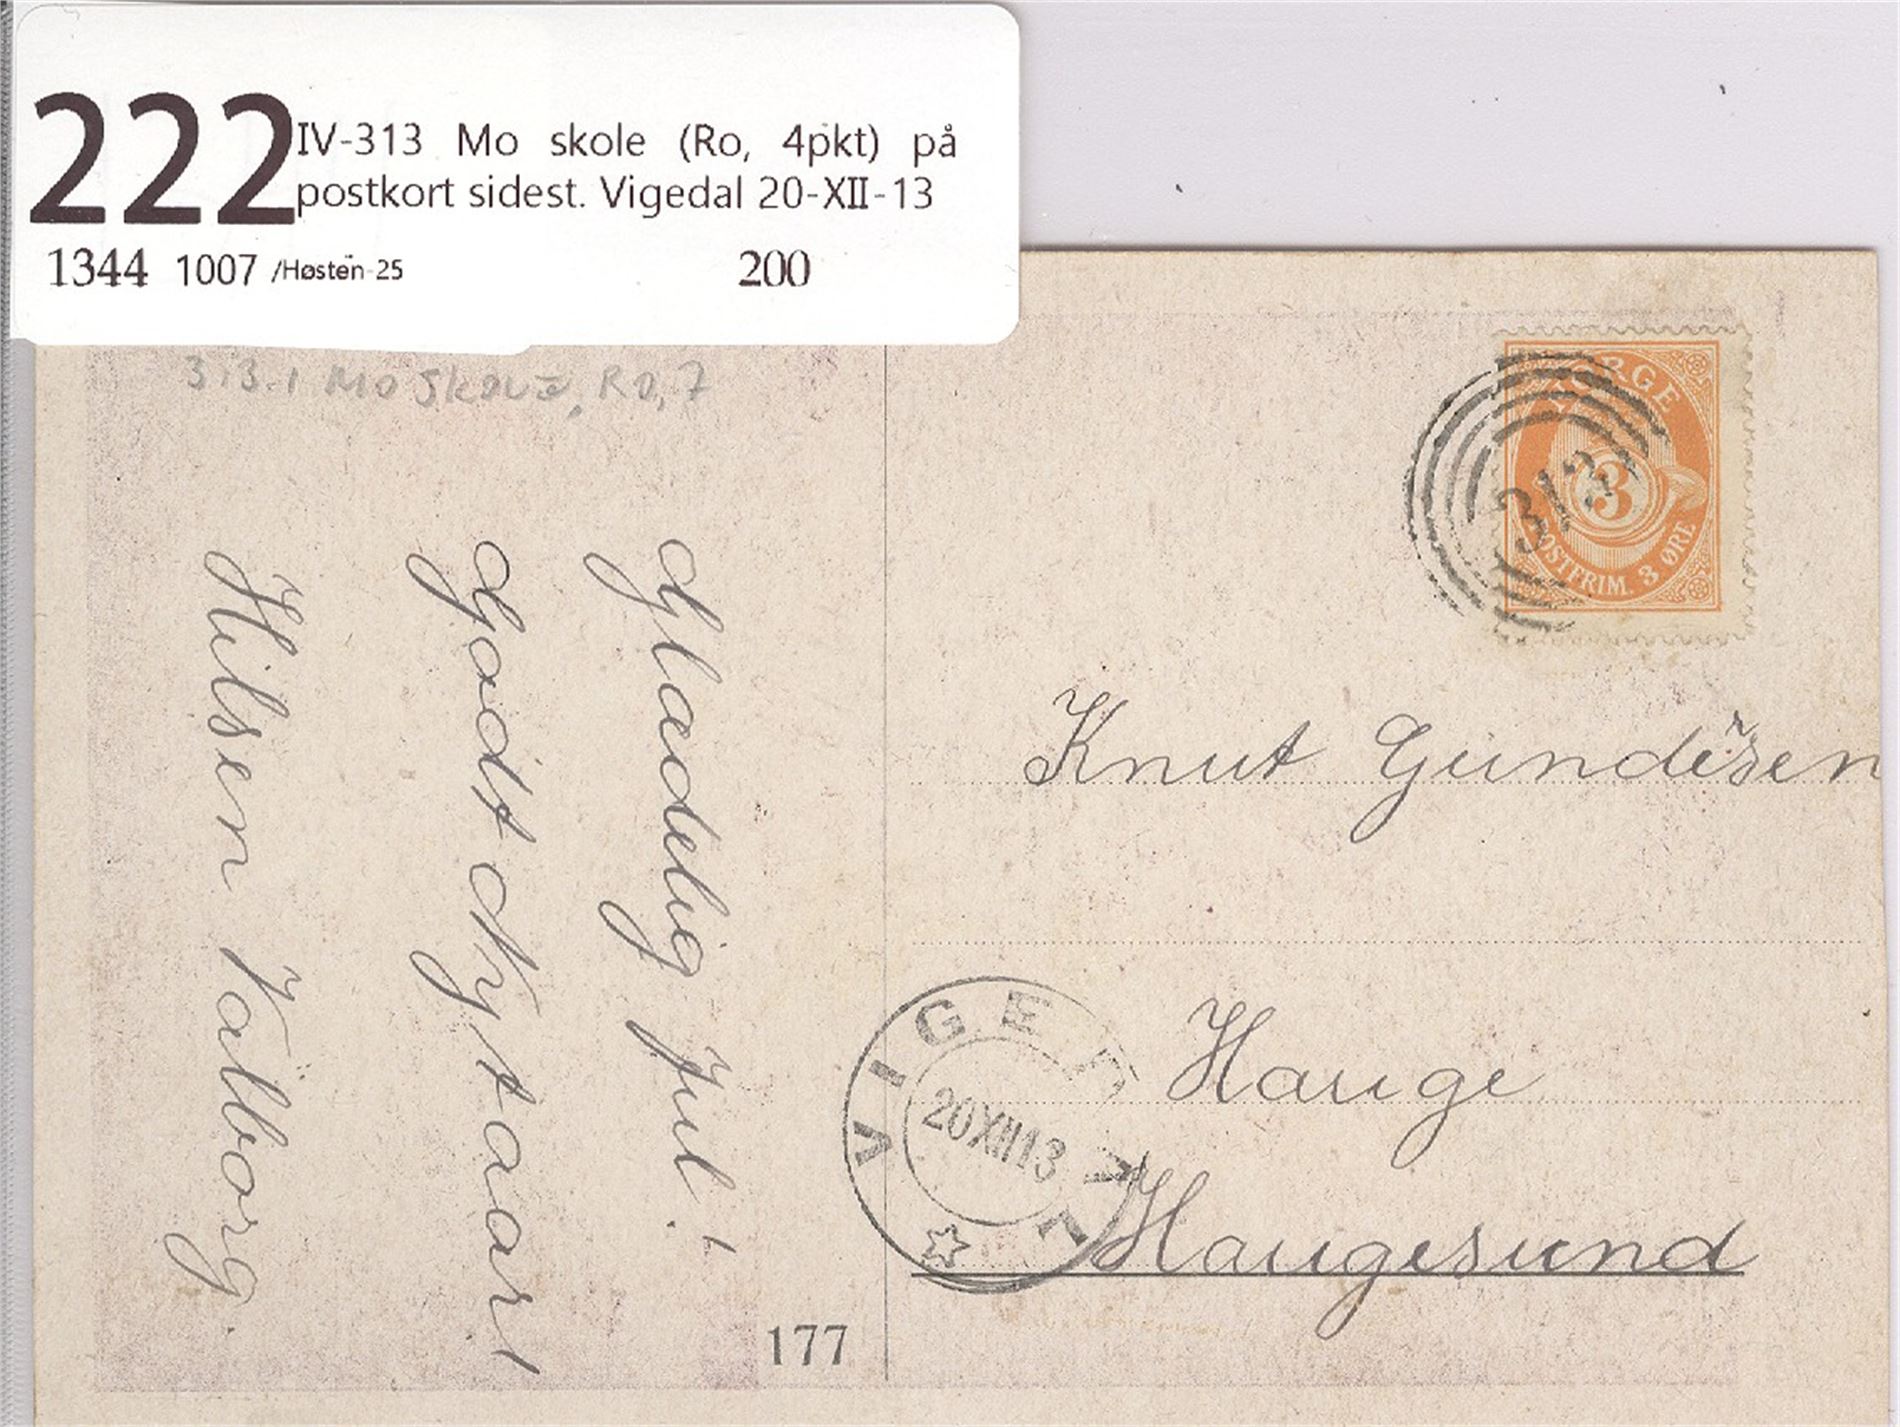 222
IV-313 Mo skole (Ro, 4pkt) på
postkort sidest. Vigedal 20-XII-13
1344 1007 /Høsten-25 200
313.1 Mo skole, Ro, 7
NORGE
3
POSTFRIM. 3 ØRE
313
Glædelig Jul!
Godt Nytaar!
Hilsen Valborg.
Knut Gundersen
Hauge
Haugesund
VIGEDAL
20XII13
177